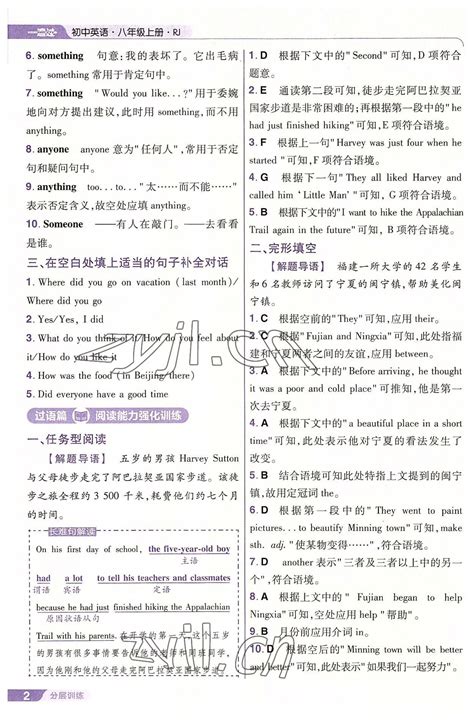 一遍过 初中英语·八年级上册·RJ
6. something 句意:我的表坏了。它出了毛病。
something 常用于肯定句中。
7. something "Would you like...?"用于委婉
地向对方提出建议,此时用 something,而不用
anything。
8. anyone anyone 意为"任何人",常用于否定句
和疑问句中。
9. anything too... to... "太……而不能……"
表示否定含义,故空处应填 anything。
10. Someone ——有人在敲门。——去看看是
谁。
三、在空白处填上适当的句子补全对话
1. Where did you go on vacation (last month)/
Where did you go
2. Yes/Yes, I did
3. What do you think of it/How do you feel about
it/How do you like it
4. How was the food (in Beijing/there)
5. Did everyone have a good time
过语篇 阅读能力强化训练
一、任务型阅读
【解题导语】 五岁的男孩 Harvey Sutton
与父母徒步走完了阿巴拉契亚国家步道。该徒
步之旅全程约 3 500 千米,耗费他们约七个月
的时间。
长难句解读
On his first day of school, the five-year-old boy
主语
had a lot to tell his teachers and classmates
谓语 宾语 定语
because he had just finished hiking the Appalachian
原因状语从句
Trail with his parents. 在开学的第一天,这个五岁
的男孩有很多事情要告诉他的老师和同班同学,
因为他和他的父母刚刚徒步走完阿巴拉契亚步道。
1. D 根据下文中的"Second"可知,D 项符合
题意。
2. E 通读第二段可知,徒步走完阿巴拉契亚
国家步道是非常困难的;再根据第一段中的"he
had just finished hiking"可知,E 项符合语境。
3. F 根据上一句"Harvey was just four when he
started"可知,F 项符合语境。
4. G 根据下文中的"Other hikers he met
called him 'Little Man'"可知,G 项符合语境。
5. A 根据下文中的"I want to hike the Appalachian
Trail again in the future"可知,A 项符合语境。
二、完形填空
【解题导语】 福建一所大学的 42 名学生
和 6 名教师访问了宁夏的闽宁镇,帮助美化闽
宁镇。
1. C 根据空前的"They"可知,应用 their。
2. C 根据"Fujian and Ningxia"可知,此处指福
建和宁夏两者之间的友谊,应用 between。
3. D 根据下文中的"Before arriving, he thought
it was a poor and cold place"可知,他最初是这么
想的。
4. A 根据空后的"a beautiful place in a short
time"可知,在那里待过后他对宁夏的看法发生了
改变。
5. B 结合语境可知此处特指上文提到的闽宁
镇,故应用定冠词 the。
6. D 根据第一段中的"They went to paint
pictures... to beautify Minning town"可知,故选
sth. adj. "使某物变得……",故选 D。
7. D another 表示"三者及三者以上中的另一
个",符合语境。
8. A 根据"Fujian began to help
Ningxia"可知,应用 help。
9. C 月份前应用介词 in。
10. A 根据空前的"Minning town will be better
and better"可知,如果我们一起继续努力。"
2 分层训练
zyjl.cn
zyjl.cn